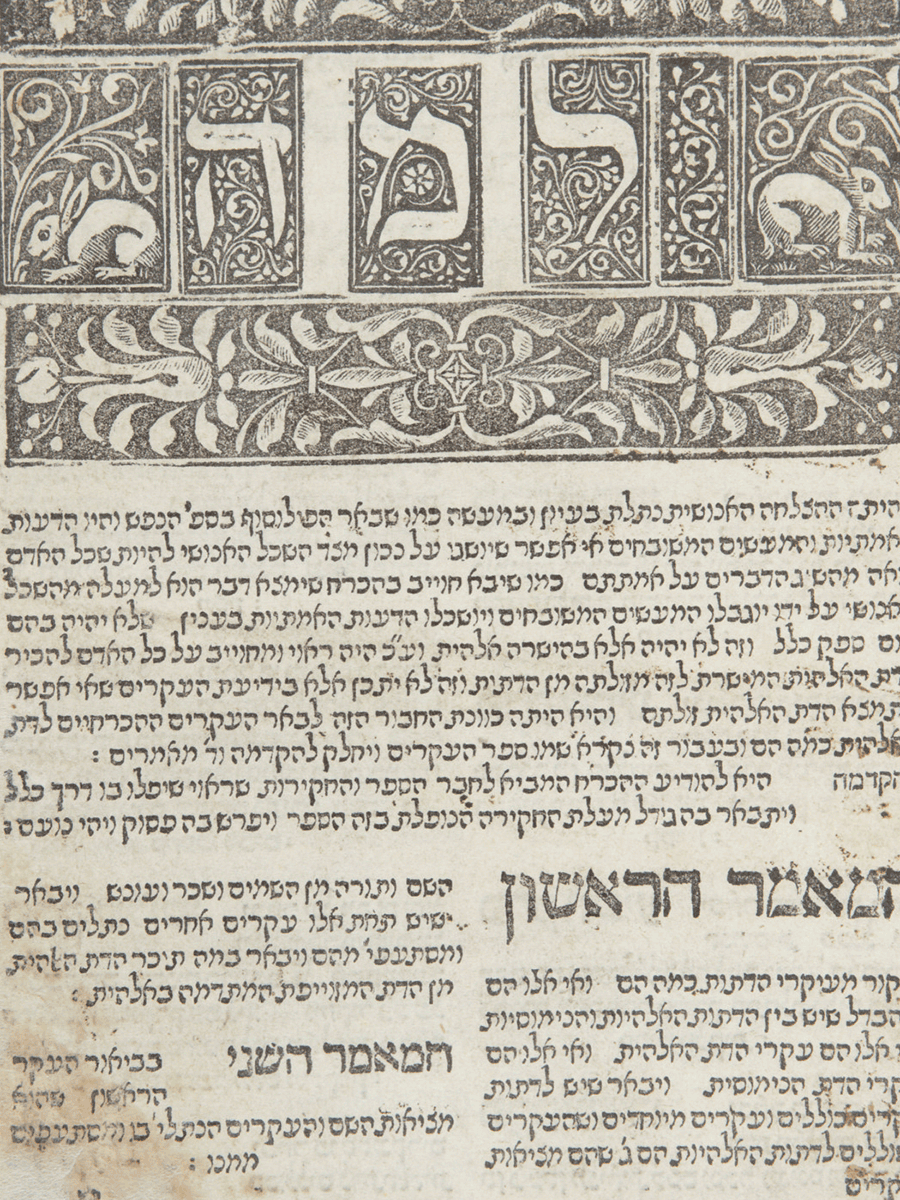 למה
היתה ההצלחה האנושית נתלת בעיון ובמעשה כמו שבאר הפילוסוף בספ' הנפש והיו הדעות
אמתיות והמעשים המשובחים אי אפשר שיושגו על נכון מצד השכל האנושי להיות שכל האדם
מהשיג הדברים על אמתתם כמו שיבא חוייב בהכרח שימצא דבר הוא למעלה מהשכל
אנושי על ידו יוגבלו המעשים המשובחים ויושכלו הדעות האמתיות בענין שלא יהיה בהם
ספק כלל וזה לא יהיה אלא בהישרה אלהית וע"כ היה ראוי ומחוייב על כל האדם להכיר
דת האלהית המישרת לזה מזולתה מן הדתות וזה לא יתכן אלא בידיעת העקרים שאי אפשר
תמצא הדת האלהית זולתם והיא היתה כוונת החבור הזה לבאר העקרים ההכרחיים לדת
אלהית כמה הם ובעבור זה נקרא שמו ספר העקרים ויחלק להקדמה וד' מאמרים :
הקדמה היא להודיע ההכרח המביא לחבר הספר והחקירות שראוי שיפלו בו דרך כלל
ויתבאר בה גודל מעלת החקירה הנופלת בזה הספר ויפרש בה פסוק ויהי נועם :
המאמר הראשון
יחקור מעיקרי הדתות כמה הם ואי אלו הם
הבדל שיש בין הדתות האלהיות והנימוסיות
אלו הם עקרי הדת האלהית ואי אלו הם
עקרי הדת הנימוסית ויבאר שיש לדתות
עקרים כוללים ועקרים מיוחדים ושהעקרים
כוללים לדתות האלהיות הם ג' שהם מציאות
השם ותורה מן השמים ושכר ועונש ויבאר
שיש תחת אלו עקרים אחרים נתלים בהם
ומסתעפי' מהם ויבאר במה תיכר הדת האלהית
מן הדת המזוייפת המתדמה באלהית :
המאמר השני בביאור העקר
הראשון שהוא
מציאות השם והעקרים הנתלי' בו ומסתעפים
ממנו :